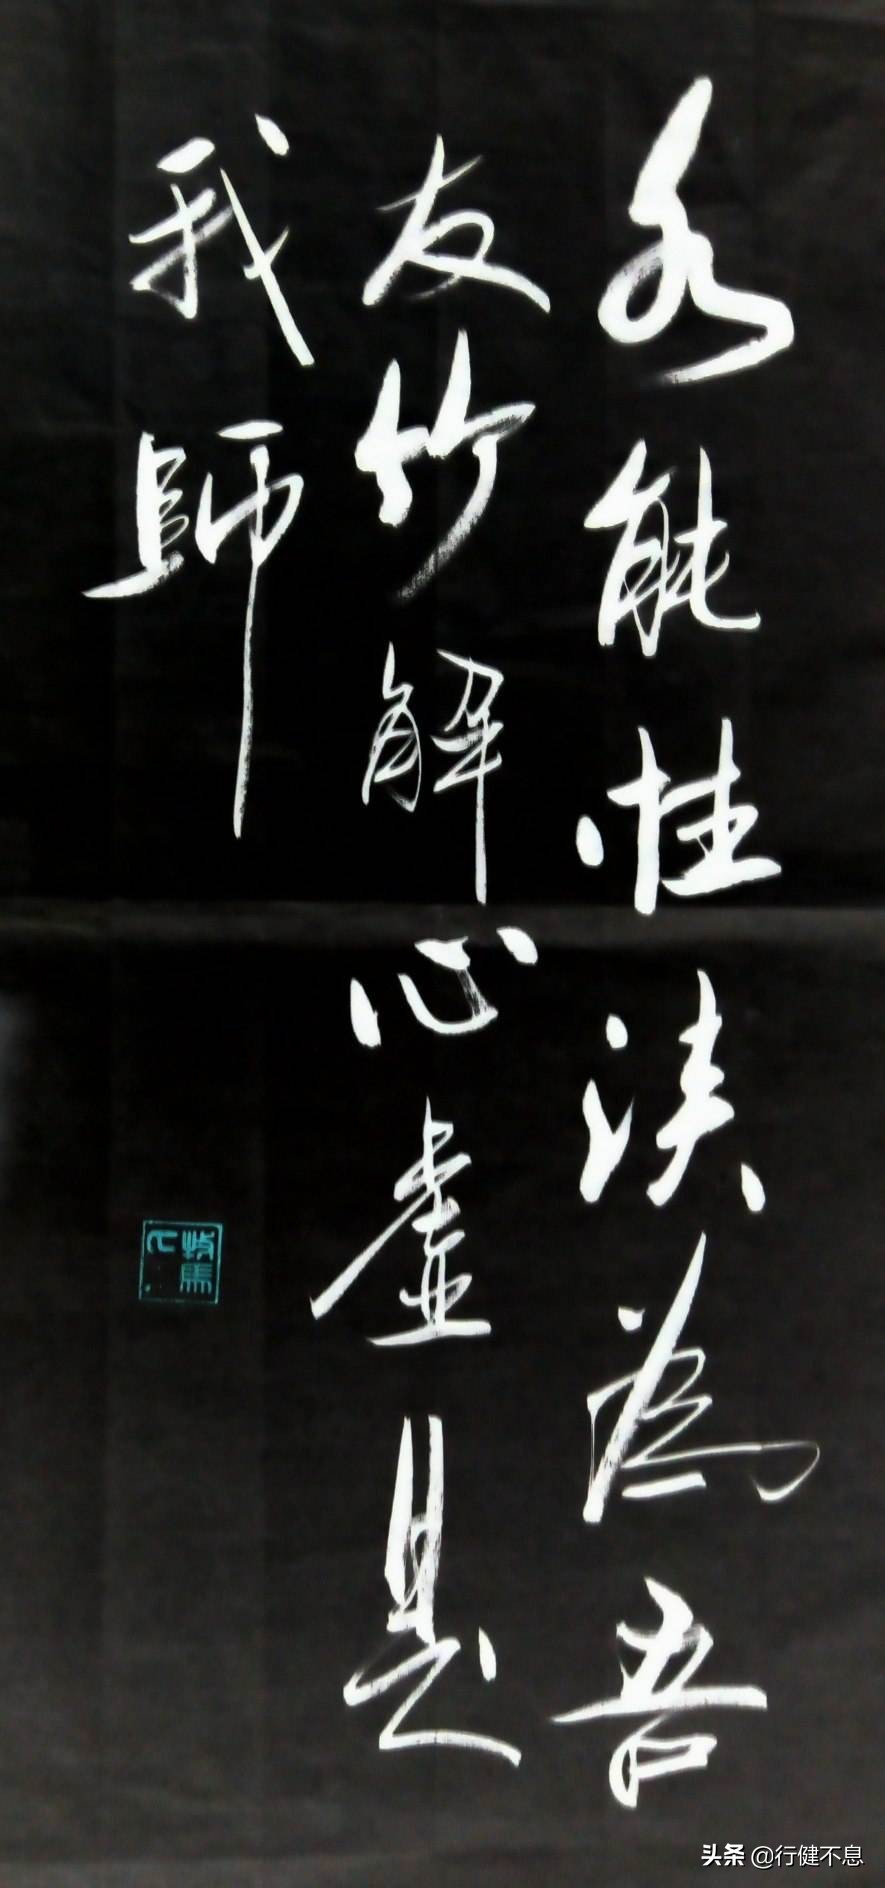 水能性淡為吾
友竹解心虚是
我師
头条 @行健不息